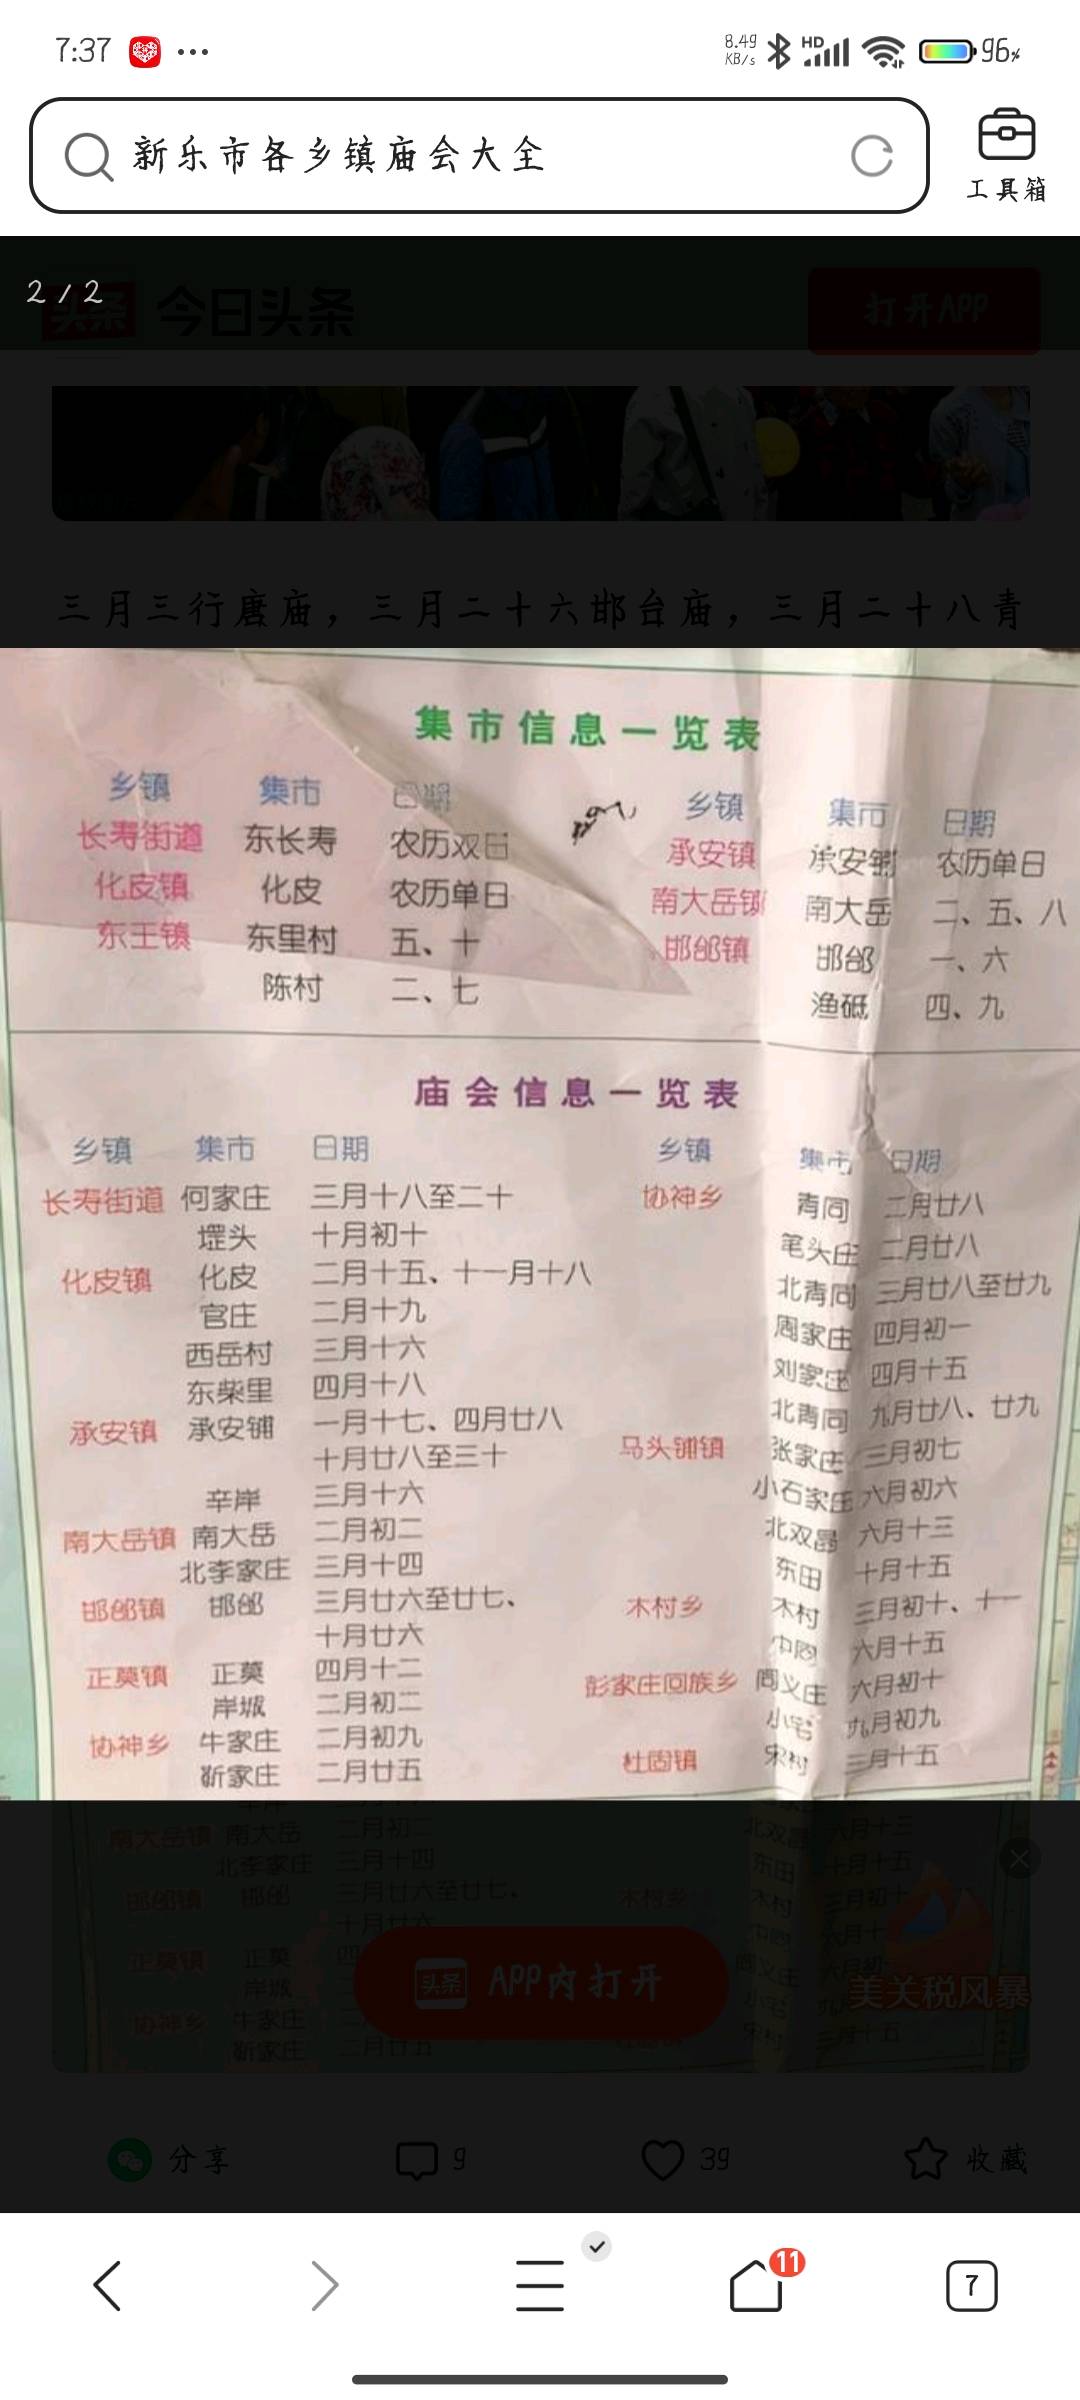 7:37
8.49 KB/s
HD
96%
新乐市各乡镇庙会大全
工具箱
2 / 2
头条 今日头条
打开APP
三月三行唐庙，三月二十六邯台庙，三月二十八青
集市信息一览表
乡镇 集市 日期 乡镇 集市 日期
长寿街道 东长寿 农历双日 承安镇 承安铺 农历单日
化皮镇 化皮 农历单日 南大岳镇 南大岳 二、五、八
东王镇 东里村 五、十 邯邰镇 邯邰 一、六
陈村 二、七 渔砥 四、九
庙会信息一览表
乡镇 集市 日期 乡镇 集市 日期
长寿街道 何家庄 三月十八至二十 协神乡 青同 二月廿八
头 十月初十 笔头庄 二月廿八
化皮镇 化皮 二月十五、十一月十八 北青同 三月廿八至廿九
官庄 二月十九 周家庄 四月初一
西岳村 三月十六 刘家庄 四月十五
东柴里 四月十八 北青同 九月廿八、廿九
承安镇 承安铺 一月十七、四月廿八 马头铺镇 张家庄 三月初七
十月廿八至三十 小石家庄 六月初六
辛岸 三月十六 北双晶 六月十三
南大岳镇 南大岳 二月初二 东田 十月十五
北李家庄 三月十四 木村乡 木村 三月初十、十一
邯邰镇 邯邰 三月廿六至廿七、 中 六月十五
十月廿六 彭家庄回族乡 义庄 六月初十
正莫镇 正莫 四月十二 小宅 九月初九
岸城 二月初二 杜固镇 宋村 三月十五
协神乡 牛家庄 二月初九
靳家庄 二月廿五
南大岳镇 南大岳 二月初二 北双晶 六月十三
北李家庄 三月十四 东田 十月十五
邯邰镇 邯邰 三月廿六至廿七、 木村乡 木村 三月初十
十月廿六
头条 APP内打开
正莫镇 正莫
岸城
美关税风暴
协神乡 牛家庄
靳家庄 二月廿五 三月十五
分享 9 39 收藏
11
7